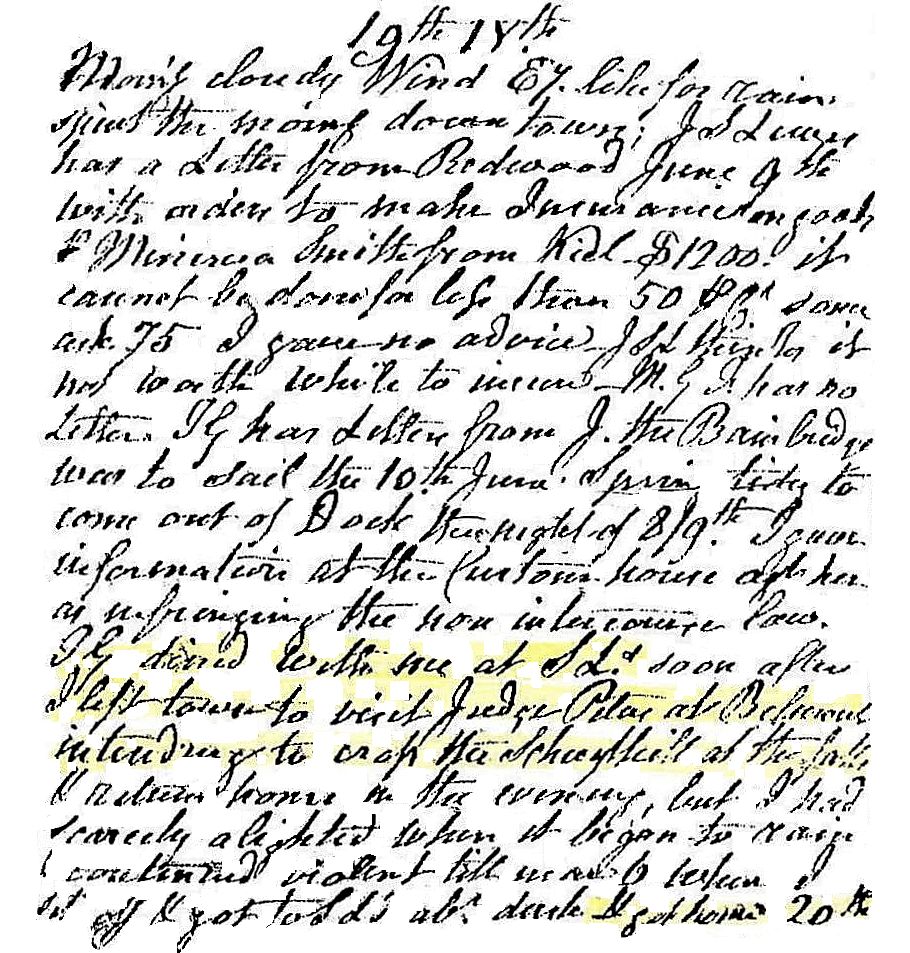 19th 18th
Morn'g cloudy Wind Ey. like for rain
spent the morng down town; J S Lewis
has a Letter from Redwood June 9th
with orders to make Insurance on goods
P Minerva Smith from Kiel $1200. it
cannot be done for less than 50 P Ct some
ask 75 I gave no advice J S L thinks it
not worth while to insure - M. G I has no
Letter. I G has Letter from J. the Bainbridge
was to sail the 10th June. Spring tides to
come out of Dock the night of 8/9th. I gave
information at the Custom house agt her
as infringing the non intercourse law.
I G dined with me at S Ls soon after
I left town to visit Judge Peters at Belmont
intending to cross the Schuylkill at the falls
& return home in the evening, but I had
scarcely alighted when it began to rain
& continued violent till near 6 when I
set off & got to S L's abt dusk & got home 20th